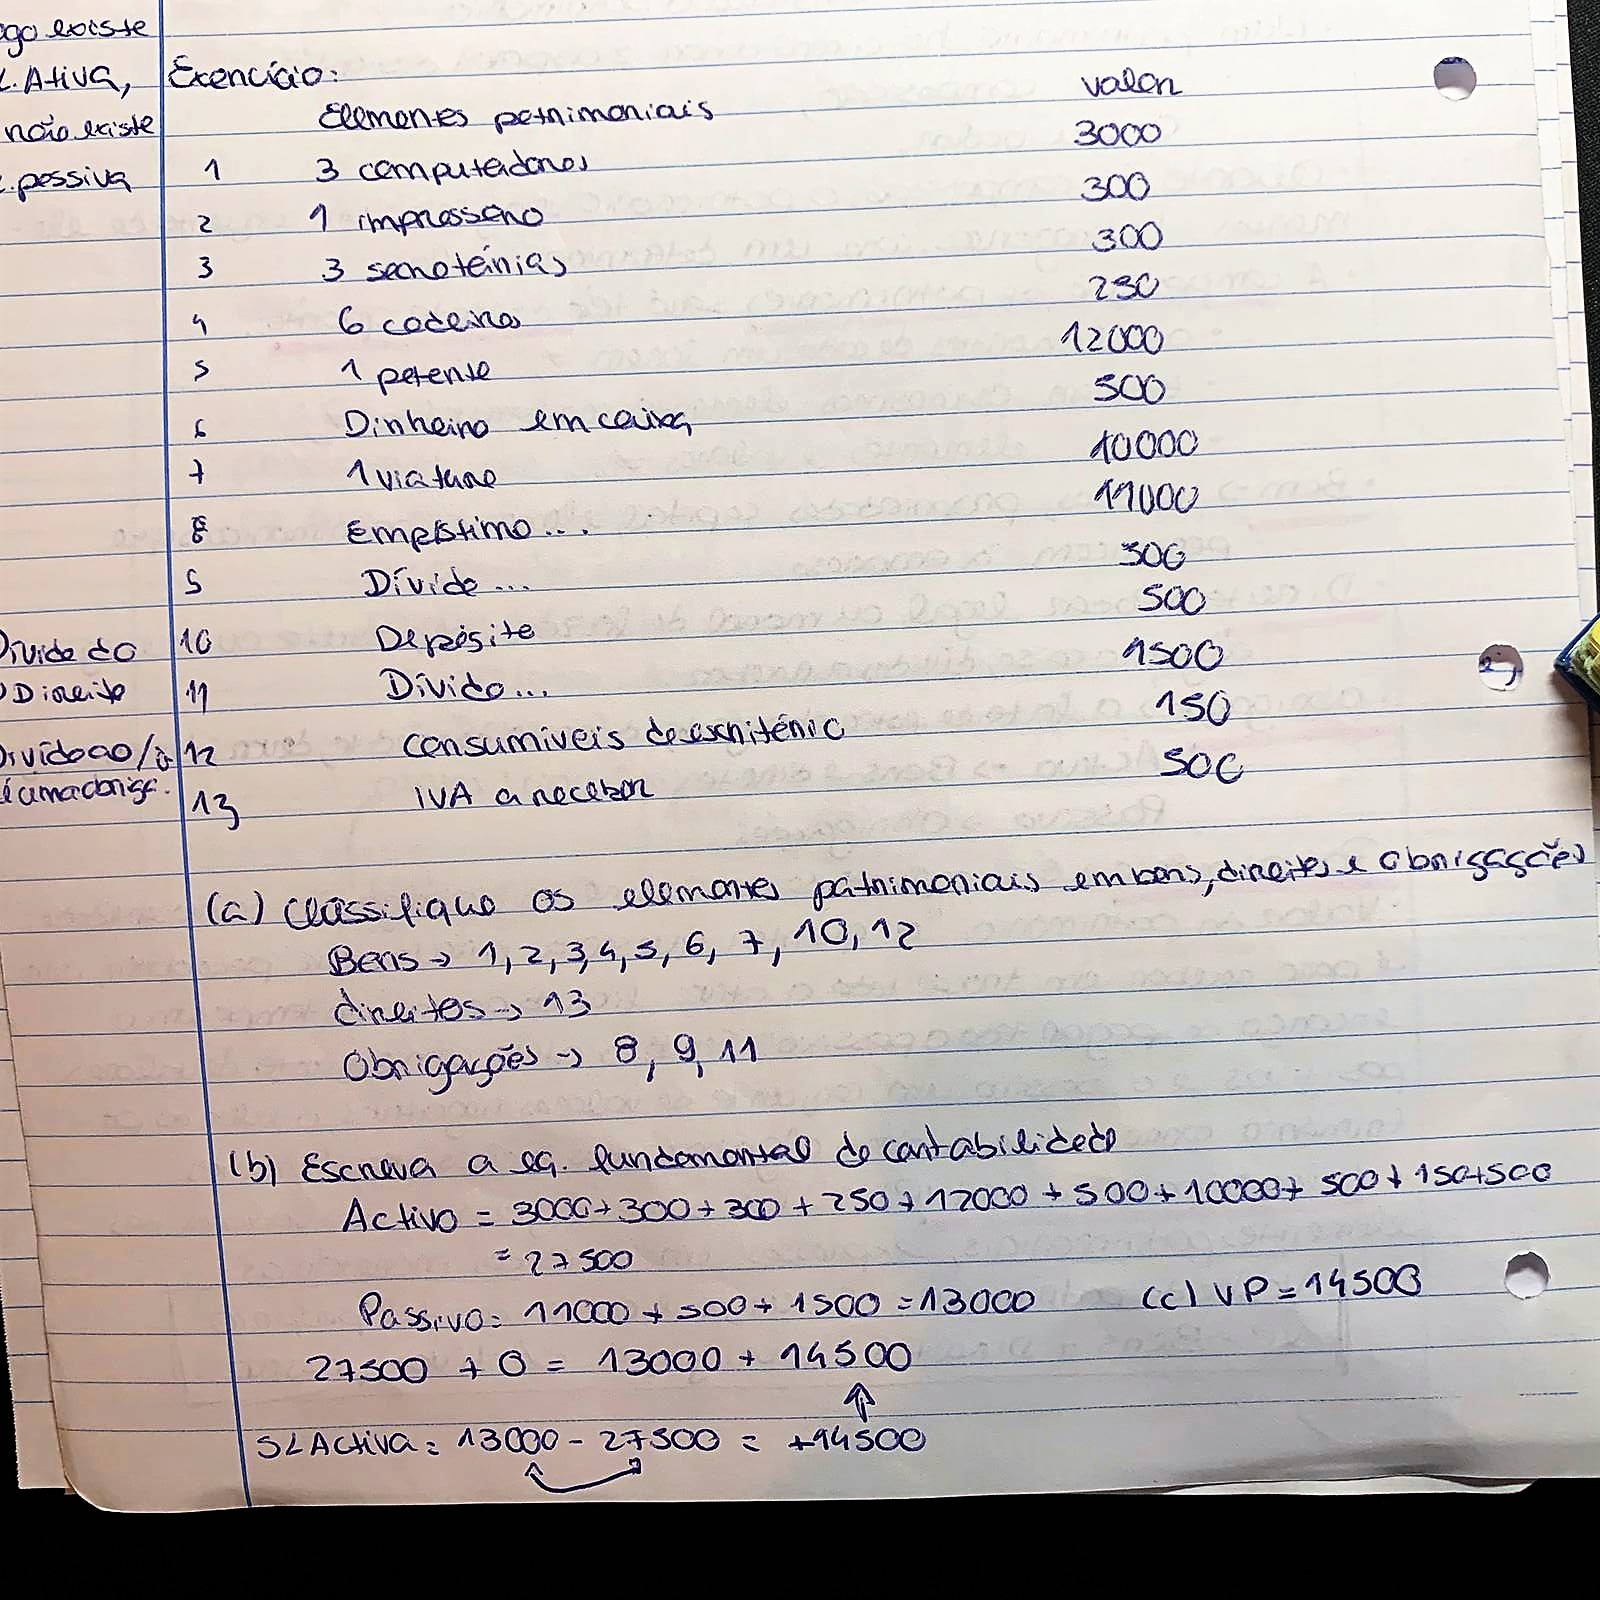 ogo existe
. Ativa,
não existe
. passiva
Exercício:
Elementos patrimoniais valor
1 3 computadores 3000
2 1 impressora 300
3 3 secretárias 300
4 6 cadeiras 250
5 1 patente 12000
6 Dinheiro em caixa 500
7 1 viatura 10000
8 Empréstimo... 11000
9 Dívida... 500
Dívida do 10 Depósito 500
Direito 11 Dívida... 1500
Dívida ao/à 12 consumíveis de escritório 150
é uma obrig. 13 IVA a receber 500
(a) Classifique os elementos patrimoniais em bens, direitos e obrigações
Bens → 1, 2, 3, 4, 5, 6, 7, 10, 12
direitos → 13
Obrigações → 8, 9, 11
(b) Escreva a eq. fundamental da contabilidade
Activo = 3000 + 300 + 300 + 250 + 12000 + 500 + 10000 + 500 + 150 + 500
= 27500
Passivo = 11000 + 500 + 1500 = 13000 (c) VP = 14500
27500 + 0 = 13000 + 14500
SL Activa = 13000 - 27500 = +14500